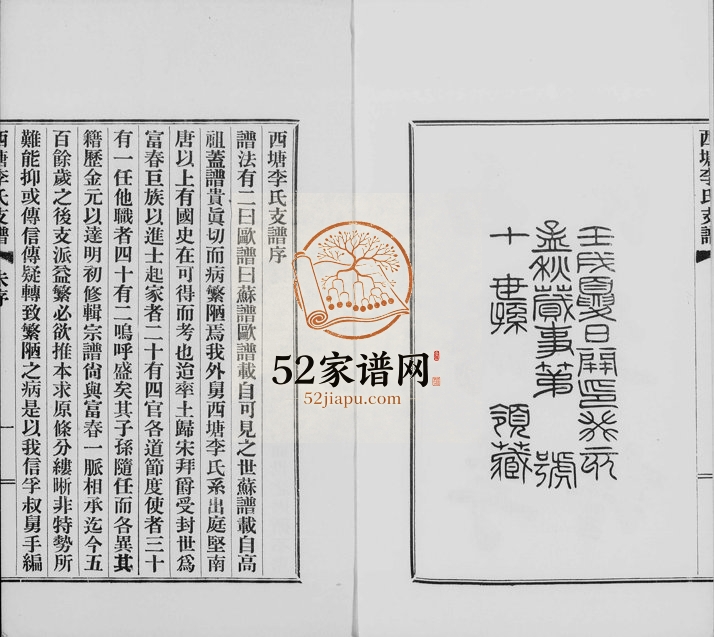 西塘李氏支譜
壬戌夏日開印共成
孟秋蕆事第 號
十 世孫 領藏
西塘李氏支譜序
譜法有二曰歐譜曰蘇譜歐譜載自可見之世蘇譜載自高
祖蓋譜貴眞切而病繁陋焉我外舅西塘李氏系出庭堅南
唐以上有國史在可得而考也迨率土歸宋拜爵受封世爲
富春巨族以進士起家者二十有四官各道節度使者三十
有一任他職者四十有二嗚呼盛矣其子孫隨任而各異其
籍歷金元以達明初修輯宗譜尙與富春一脈相承迄今五
百餘歲之後支派益繁必欲推本求原條分縷晰非特勢所
難能抑或傳信傳疑轉致繁陋之病是以我信孚叔舅手編
西塘李氏支譜 朱序 一
52家谱网
52jiapu.com